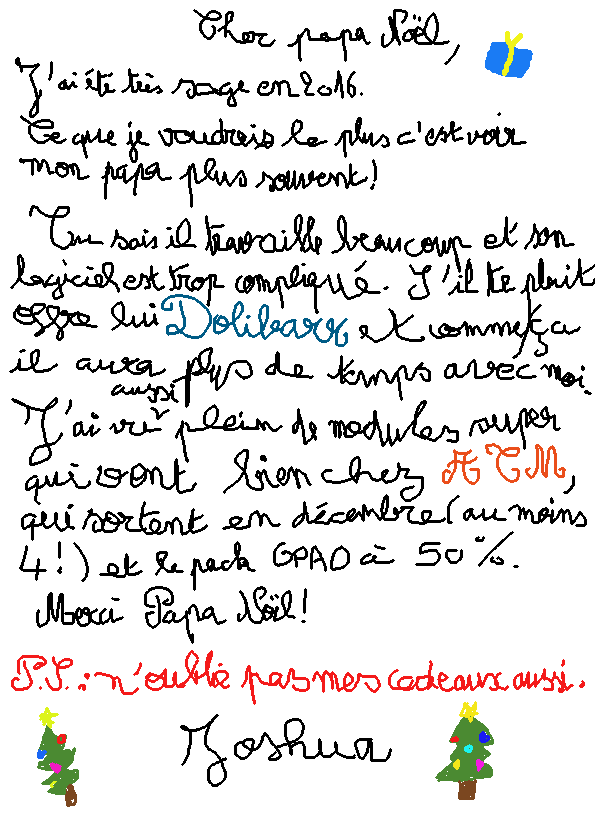 Cher papa Noël,
J'ai été très sage en 2016.
Ce que je voudrais le plus c'est voir
mon papa plus souvent!
Tu sais il travaille beaucoup et son
logiciel est trop compliqué. S'il te plait
offre lui Dolibarr et comme ça
il aura plus de temps avec moi.
J'ai vu aussi plein de modules super
qui vont bien chez ATM,
qui sortent en décembre (au moins
4!) et le pack GPAO à 50%.
Merci Papa Noël!
P.S.: n'oublie pas mes cadeaux aussi.
Joshua